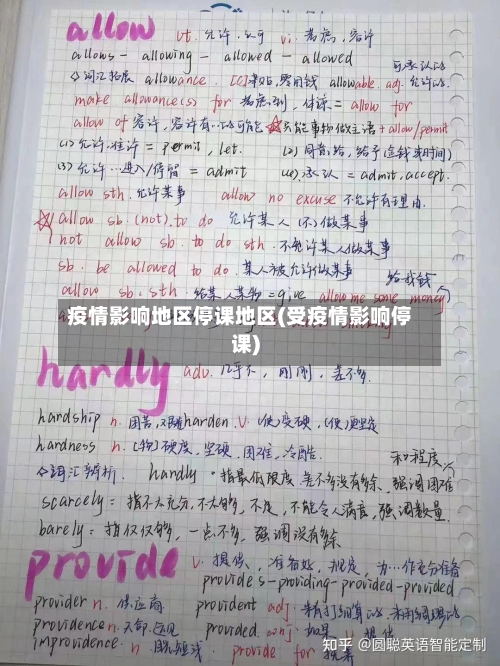 allow vt. 允许, 认可 vi. 考虑, 容许
allows - allowing - allowed - allowed
词汇拓展 allowance. [C] 津贴, 零用钱 allowable adj. 允许的 可承认的
make allowance(s) for 考虑到, 体谅 = allow for
allow of 容许, 容许有…的可能 只能事物做主语 + allow/permit
(1) 允许, 准许 = permit, let. (2) 同意给, 给予 (金钱或时间)
(3) 允许…进入/停留 = admit (4) 承认 = admit, accept.
allow sth. 允许某事 allow no excuse 不允许有理由.
allow sb. (not) to do 允许某人 (不) 做某事
not allow sb. to do sth. 不允许某人做某事
sb. be allowed to do. 某人被允许做某事 给我钱
allow sb. sth 给某人某物 = give allow me some money
疫情影响地区停课地区(受疫情影响停
课)
hardly adv. 几乎不, 刚刚, 差不多.
hardship n. 困苦, 艰难 harden. v. (使)变硬, (使)更坚定
hardness n. [物] 硬度, 坚硬, 困难, 冷酷. 和程度
词汇辨析. hardly: 指最低限度, 差不多没有多余, 强调困难
scarcely: 指不大充分, 不太够, 不足, 不能令人满意, 强调数量.
barely: 指仅仅够, 一点不多, 强调没有多余
provide v. 提供, 准备好, 规定, 为…作充分准备
provides-providing-provided-provided
provider n. 供应商 provident adj.
providence n. 天命 provided conj 如果
improvidence n. provide for
知乎 @圆聪英语智能定制